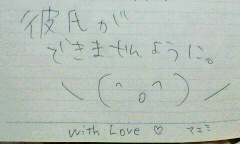 彼氏が
できませんように。
＼(^o^)／
with Love ♡ アユミ